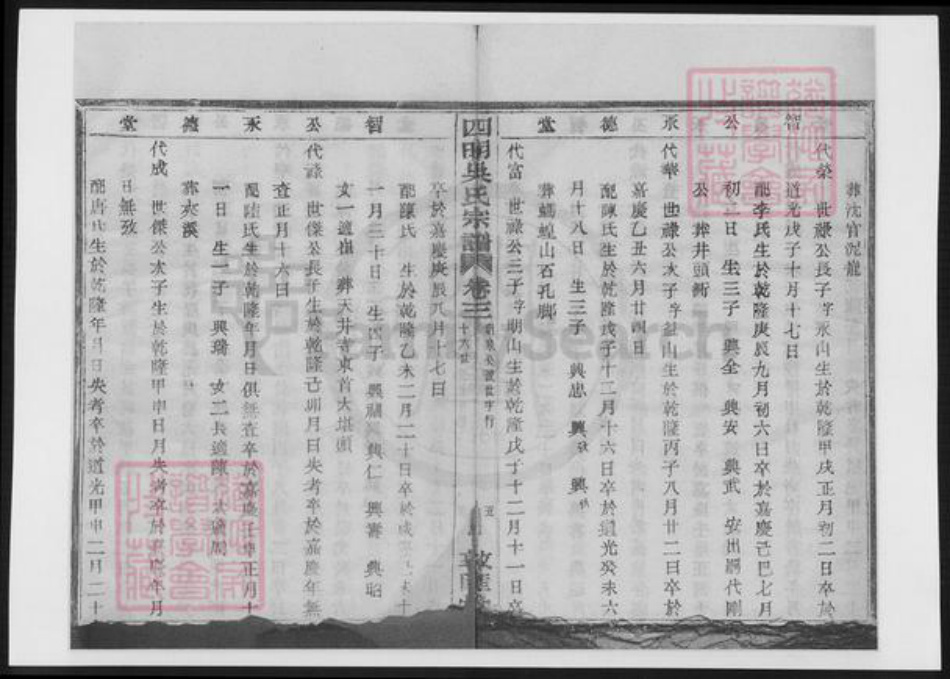 葬沈官泥龍
智 代榮 世祿公長子字永山生於乾隆甲戌正月初二日卒於
道光戊子十月十七日
配李氏生於乾隆庚辰九月初六日卒於嘉慶己巳七月
公 初三日 生三子 興全 興安 興武 安出嗣代剛
公 葬井頭衕
承 代華 世祿公次子字組山生於乾隆丙子八月廿二日卒於
嘉慶乙丑六月廿四日
德 配陳氏生於乾隆戊子十二月十六日卒於道光癸未六
月十八日 生三子 興忠 興 興
堂 代富 世祿公三子字明山生於乾隆戊子十二月十一日卒
葬螞蝗山石孔腳
四明吳氏宗譜 卷三
十六世
五
卒於嘉慶庚辰八月十七日
配陳氏 生於乾隆乙未二月二十日卒於咸
智 一月三十日 生四子 興 興仁 興壽 興昭
女一適崔 葬天井 東首大堪頭
公 代 世傑公長子生於乾隆己卯月日失考卒於嘉慶年無
查正月十六日
承 配陸氏生於乾隆年月日俱無查卒於嘉慶 正月十
一日 生一子 興瑞 女二長適陳 次適周
德 葬夾溪
堂 代成 世傑公次子生於乾隆甲申日月失考卒於 慶年月
日無攷
配唐氏生於乾隆年月日失考卒於道光甲申二月二十